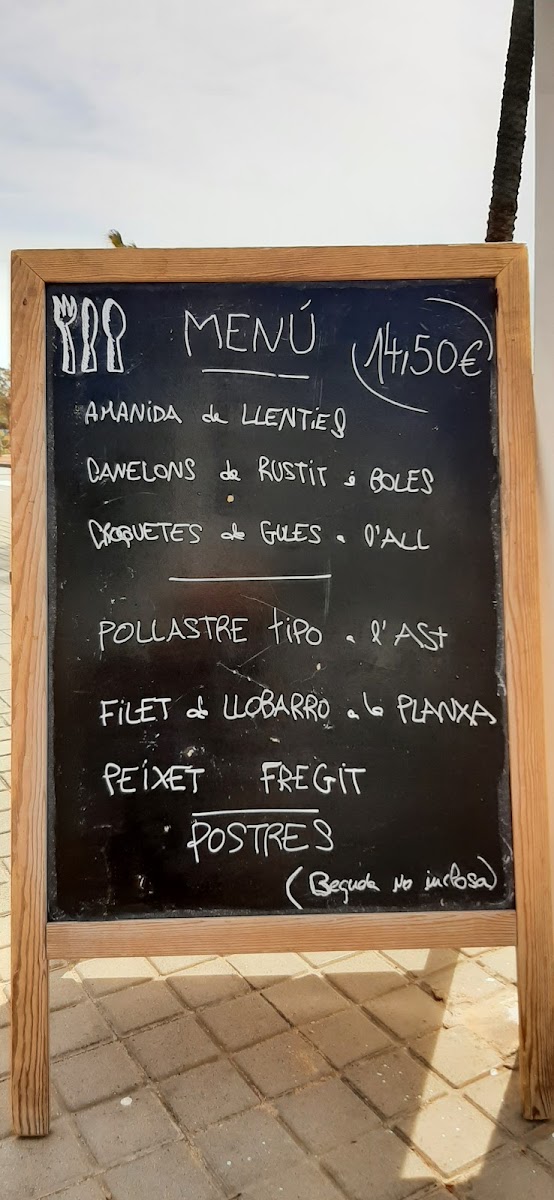 MENÚ
14,50€
AMANIDA de LLENTIES
CANELONS de RUSTIT i BOLES
CROQUETES de GULES a l'ALL
POLLASTRE tiPO a l'ASt
FiLET de LLOBARRO a la PLANXA
PEiXET FREGIT
POSTRES
(Beguda No inclosa)